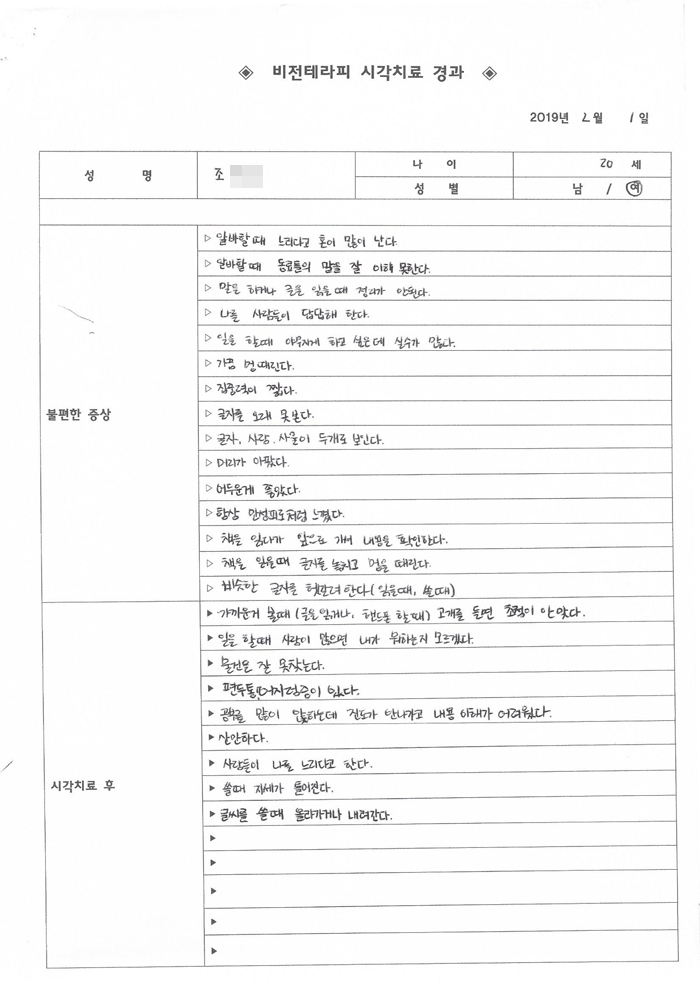 ◈ 비전테라피 시각치료 경과 ◈
2019년 2월 1일
성 명 조 나 이 20 세
성 별 남 / 여
불편한 증상
▷ 알바할때 느리다고 혼이 많이 난다.
▷ 알바할때 동료들의 말을 잘 이해 못한다.
▷ 말을 하거나 글을 읽을때 정리가 안된다.
▷ 나를 사람들이 답답해 한다.
▷ 일을 할때 야무지게 하고 싶은데 실수가 많다.
▷ 가끔 멍때린다.
▷ 집중력이 짧다.
▷ 글자를 오래 못본다.
▷ 글자, 사람, 사물이 두개로 보인다.
▷ 머리가 아팠다.
▷ 어두운게 좋았다.
▷ 항상 만성피로처럼 느꼈다.
▷ 책을 읽다가 앞으로 가서 내용을 확인한다.
▷ 책을 읽을때 글자를 놓치고 멍을 때린다.
▷ 비슷한 글자를 헷갈려한다(읽을때, 쓸때)
시각치료 후
▶ 가까운거 볼때(글을읽거나, 핸드폰 할때) 고개를 들면 초점이 안맞다.
▶ 일을 할때 사람이 많으면 내가 뭐하는지 모르겠다.
▶ 물건을 잘 못찾는다.
▶ 편두통, 어지러증이 있다.
▶ 공부를 많이 하는데 진도가 안나가고 내용 이해가 어려웠다.
▶ 산안하다.
▶ 사람들이 나를 느리다고 한다.
▶ 쓸때 자세가 틀어진다.
▶ 글씨를 쓸때 올라가거나 내려간다.
▶
▶
▶
▶
▶